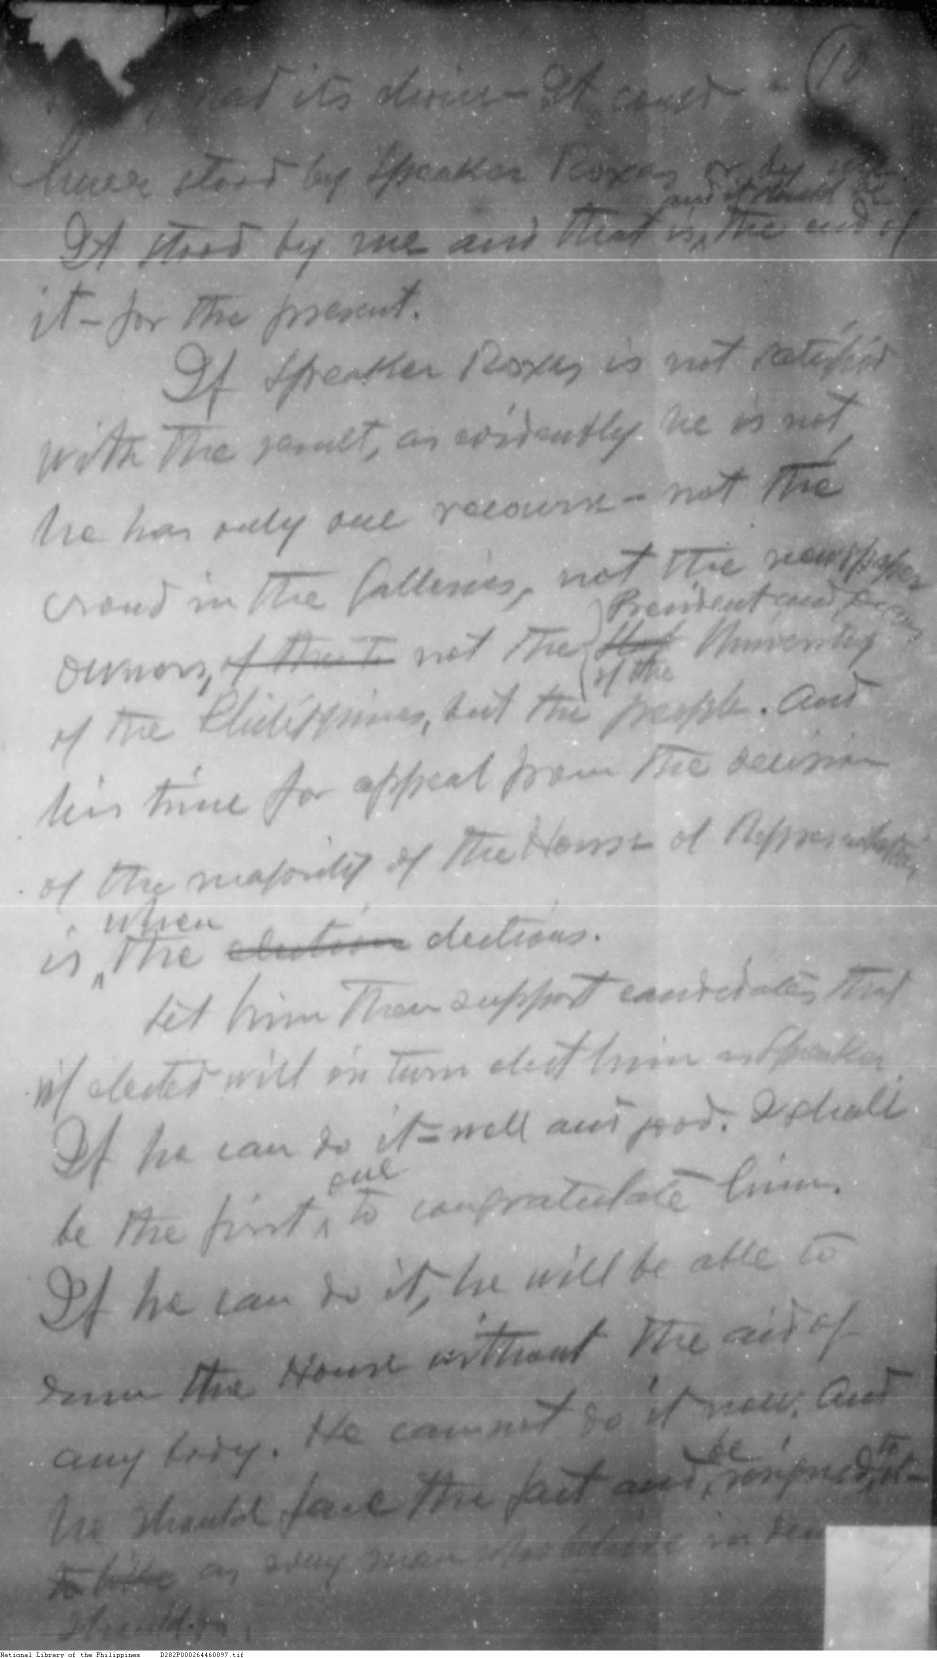 had its choice - It could (10
have stood by Speaker Roxas or by
and it should be
It stood by me and that is, the end of
it - for the present.
If Speaker Roxas is not satisfied
with the result, as evidently he is not,
he has only one recourse - not the
crowd in the Galleries, not the newspaper
President and
owners, of the not the University
of the
of the Philippines, but the people. And
his time for appeal from the decision
of the majority of the House of Representatives
when
is ^ the election elections.
Let him then support candidates that
if elected will in turn elect him as Speaker.
If he can do it - well and good. I shall
one
be the first ^ to congratulate him.
If he can do it, he will be able to
the House without the aid of
any body. He cannot do it now. And
be to
he should face the fact and, resigned, it -
as every man who believe in
should do.
National Library of the Philippines D282P000264460097.tif